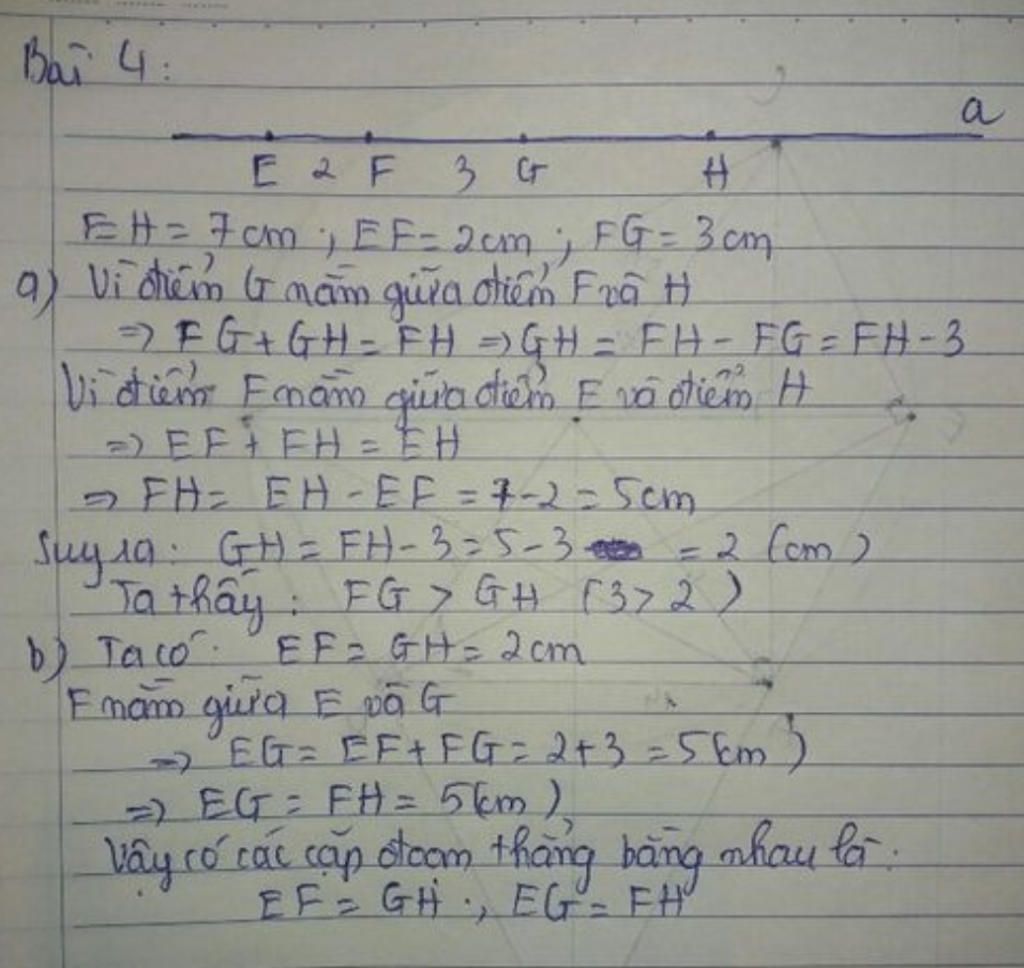 Bài 4:
a
E 2 F 3 G H
EH = 7cm ; EF = 2cm ; FG = 3cm
a) Vì điểm G nằm giữa điểm F và H
=> FG + GH = FH => GH = FH - FG = FH - 3
Vì điểm F nằm giữa điểm E và điểm H
=> EF + FH = EH
=> FH = EH - EF = 7 - 2 = 5cm
Suy ra: GH = FH - 3 = 5 - 3 = 2 (cm)
Ta thấy: FG > GH (3 > 2)
b) Ta có: EF = GH = 2cm
F nằm giữa E và G
=> EG = EF + FG = 2 + 3 = 5(cm)
=> EG = FH = 5(cm)
Vậy có các cặp đoạn thẳng bằng nhau là:
EF = GH ; EG = FH